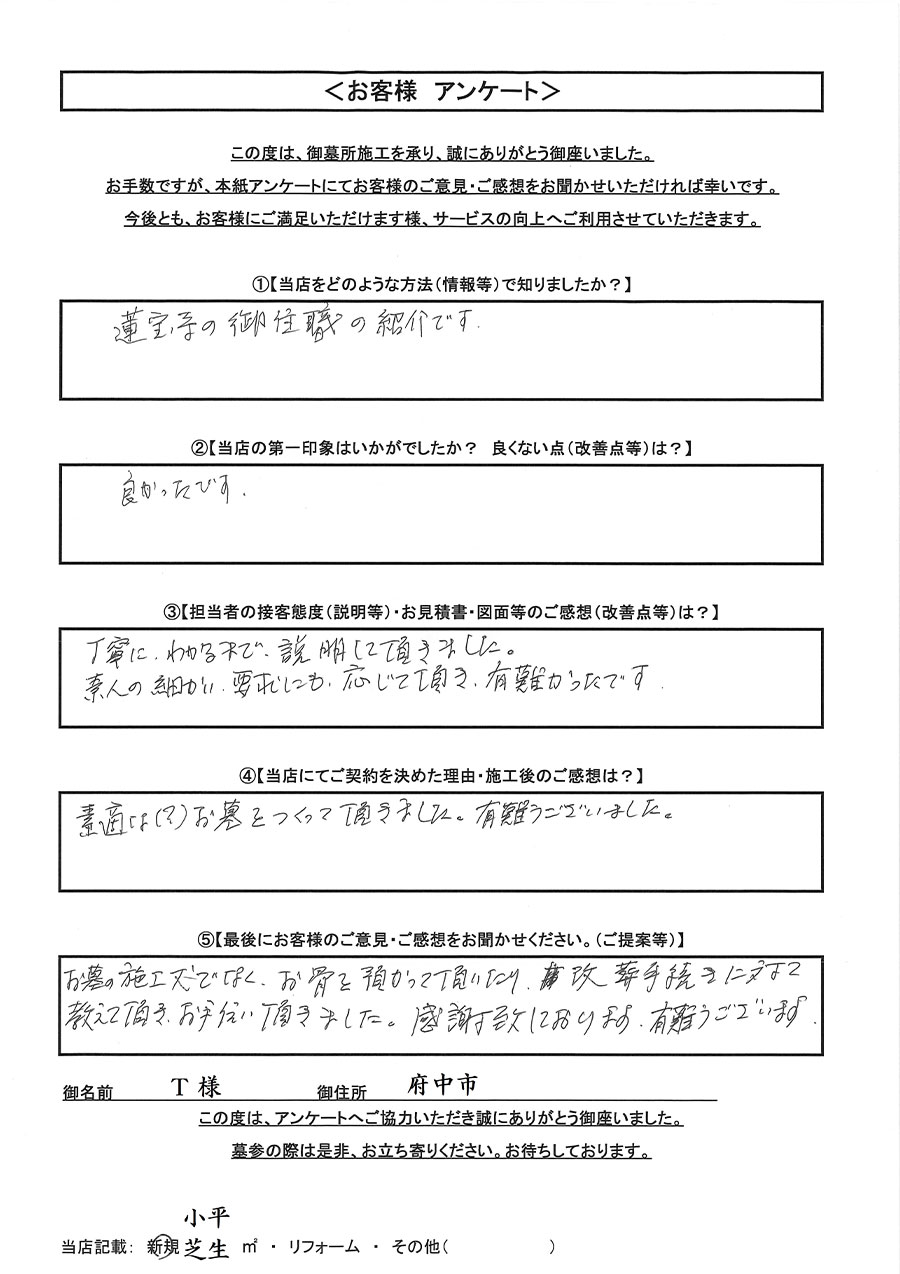 ＜お客様 アンケート＞
この度は、御墓所施工を承り、誠にありがとう御座いました。
お手数ですが、本紙アンケートにてお客様のご意見・ご感想をお聞かせいただければ幸いです。
今後とも、お客様にご満足いただけます様、サービスの向上へご利用させていただきます。
①【当店をどのような方法（情報等）で知りましたか？】
蓮宝寺の御住職の紹介です.
②【当店の第一印象はいかがでしたか？ 良くない点（改善点等）は？】
良かったです.
③【担当者の接客態度（説明等）・お見積書・図面等のご感想（改善点等）は？】
丁寧に、わかるまで、説明して頂きました。
素人の細かい、要求にも、応じて頂き、有難かったです.
④【当店にてご契約を決めた理由・施工後のご感想は？】
素適な お墓をつくって頂きました。有難うございました。
⑤【最後にお客様のご意見・ご感想をお聞かせください。（ご提案等）】
お墓の施工だけでなく、お骨を預かって頂いたり、改葬手続きに対して
教えて頂き、お手伝い頂きました。感謝致しております、有難うございます.
御名前 T 様 御住所 府中市
この度は、アンケートへご協力いただき誠にありがとう御座いました。
墓参の際は是非、お立ち寄りください。お待ちしております。
小平
当店記載： 新規 芝生 ㎡ ・ リフォーム ・ その他（ ）